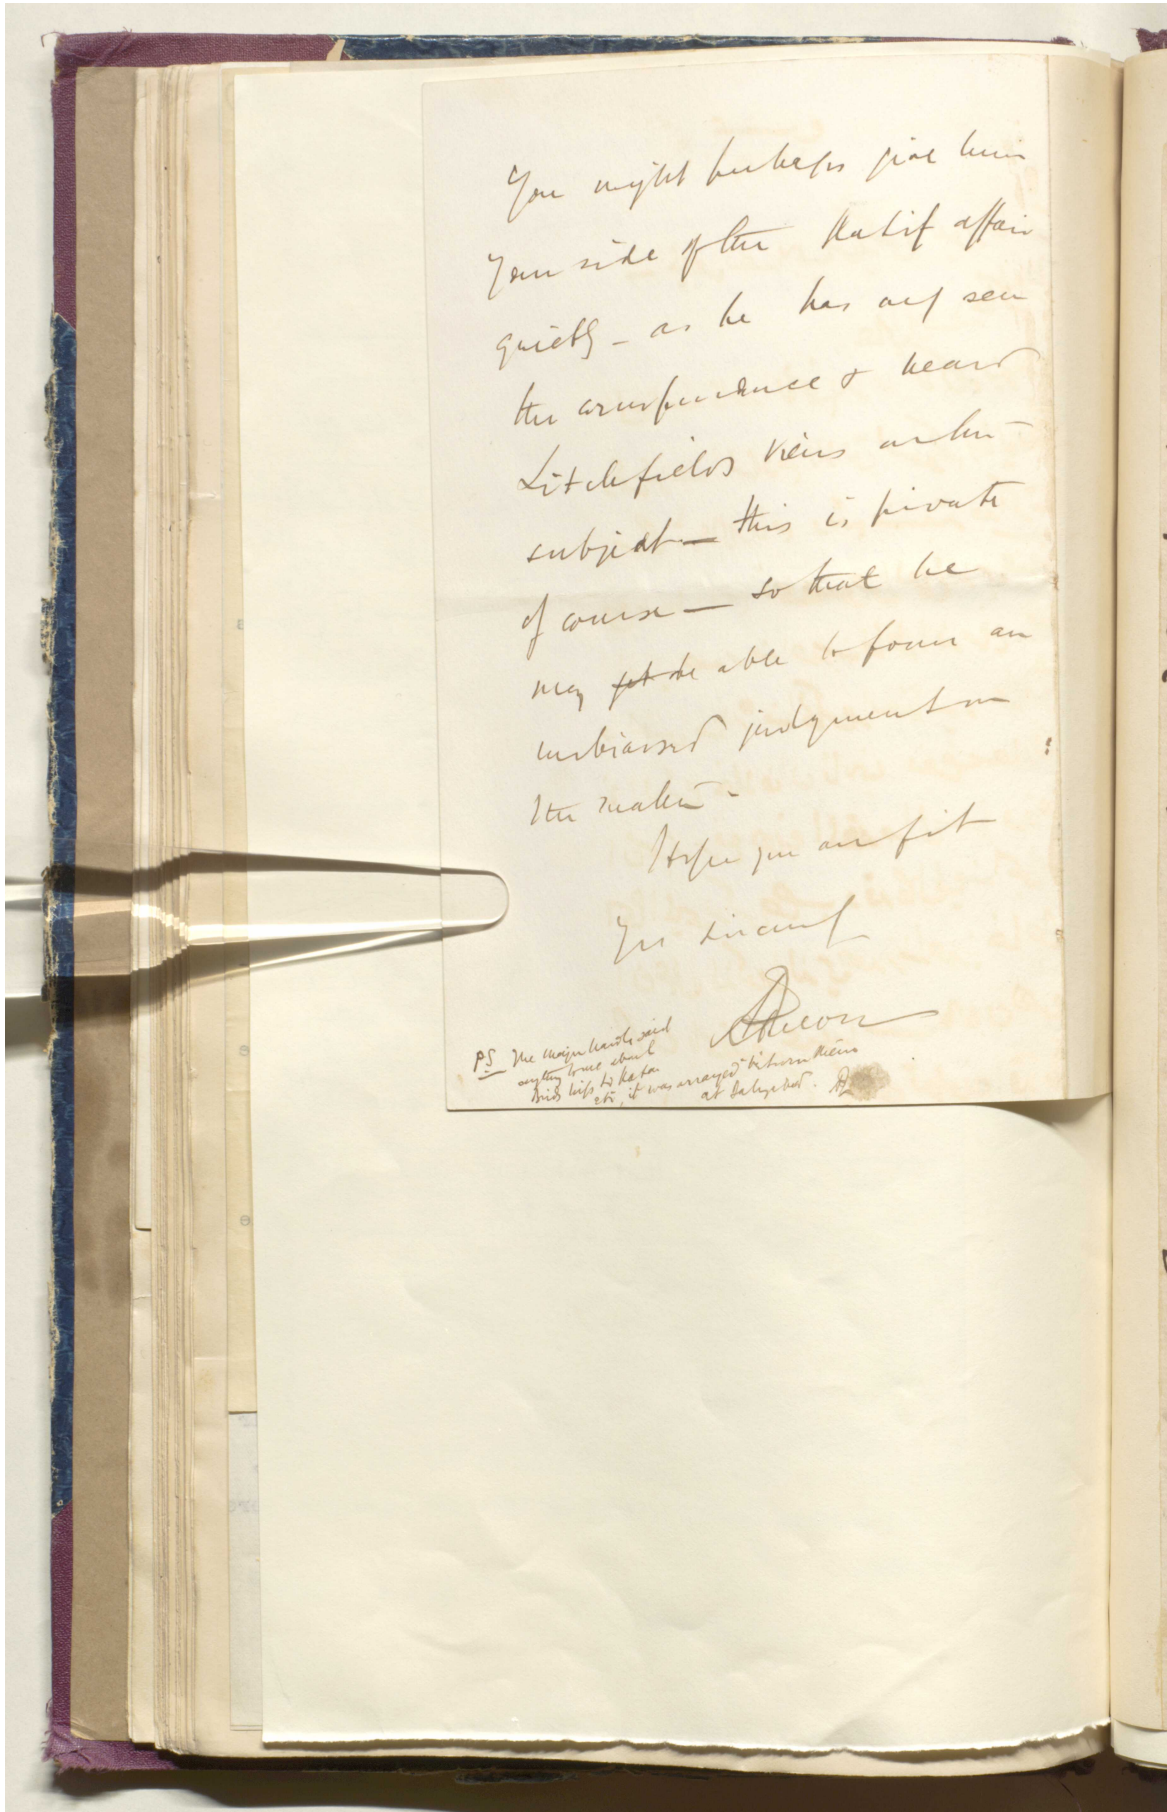 You might perhaps give him
your side of the Katif affair
quietly - as he has only seen
the correspondence & heard
Litchfields views on the
subject — this is private
of course — so that he
may be able to form an
unbiassed judgment on
the matter -
Hope you are fit
Yrs sincerely
PS The Major hardly said
anything to me about
trips to Katar
etc, it was arranged between them
at